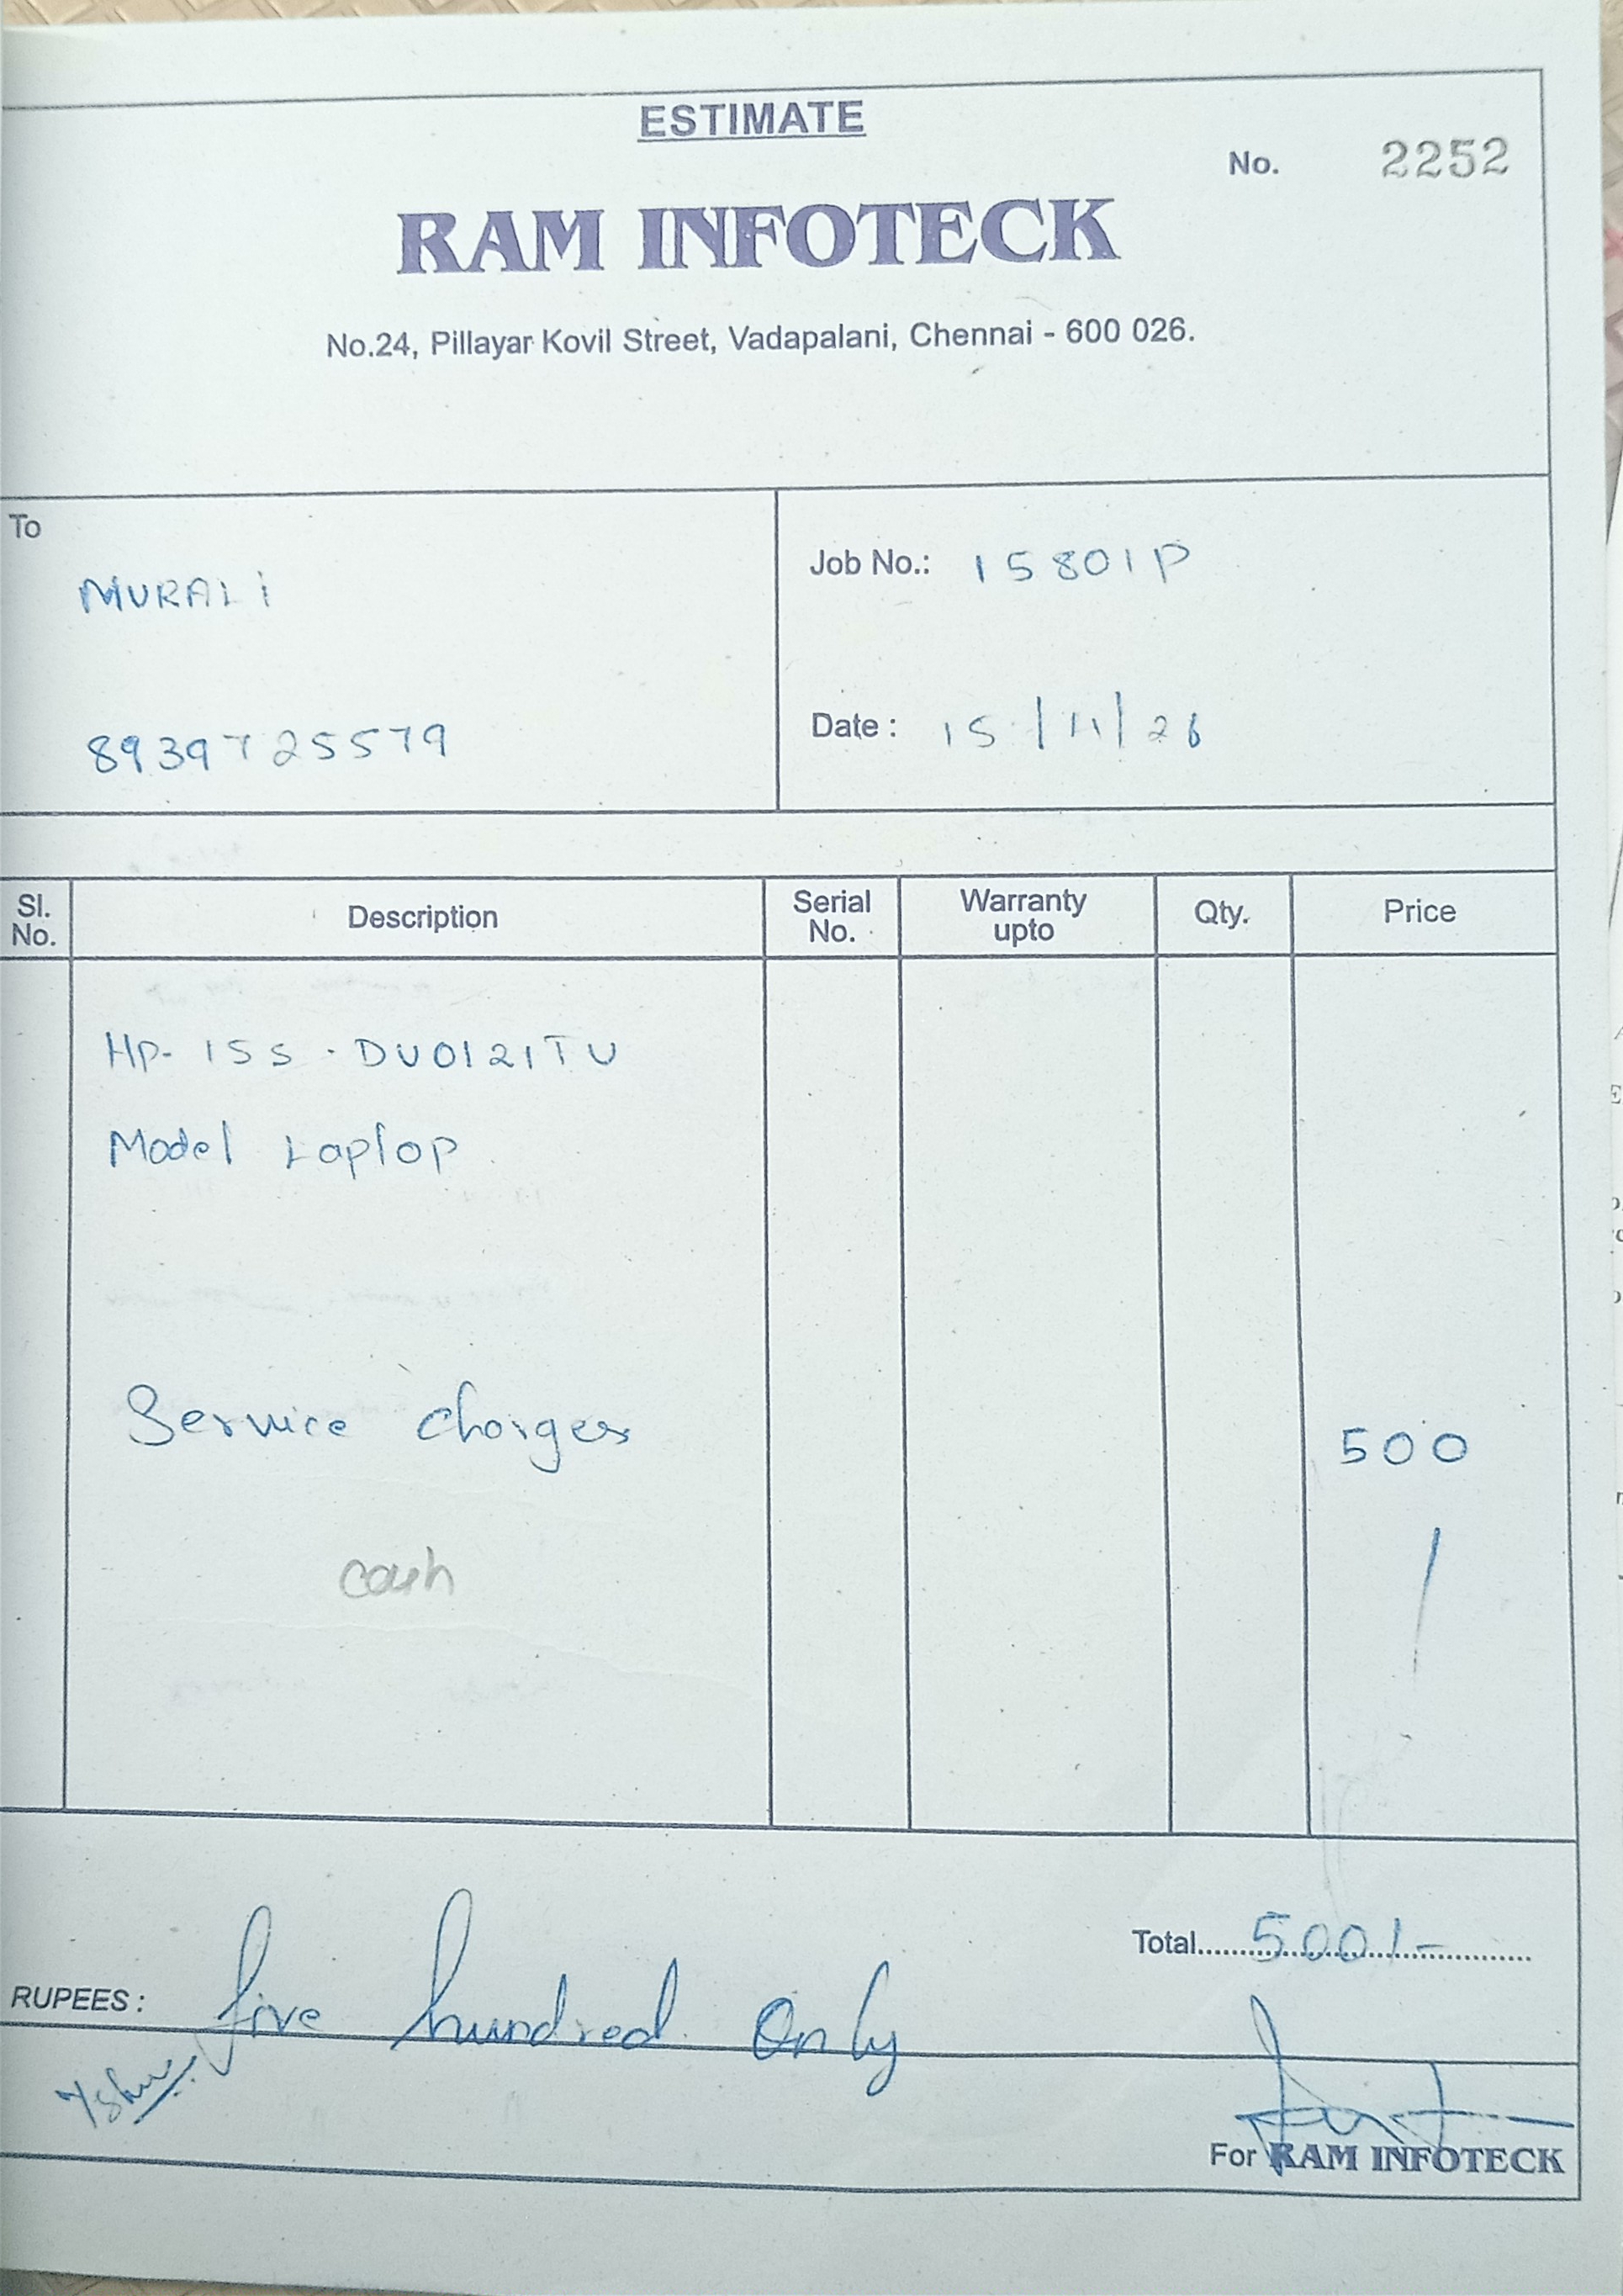 ESTIMATE
No. 2252
RAM INFOTECK
No.24, Pillayar Kovil Street, Vadapalani, Chennai - 600 026.
To
MURALI
8939725579
Job No.: 15801P
Date : 15/11/26
Sl. No. Description Serial No. Warranty upto Qty. Price
HP- 15s - DU0121TU
Model Laptop
Service charges 500
cash
Total 500/-
RUPEES : five hundred only
For RAM INFOTECK